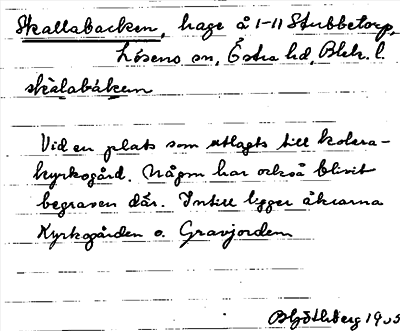 Skallabacken, hage å 1-11 Stubbetorp,
Lösens sn, Östra hd, Blek. l.
skàlabàken
Vid en plats som utlagts till kolera-
kyrkogård. Någon har också blivit
begraven där. Intill ligger åkrarna
Kyrkogården o. Gravjorden